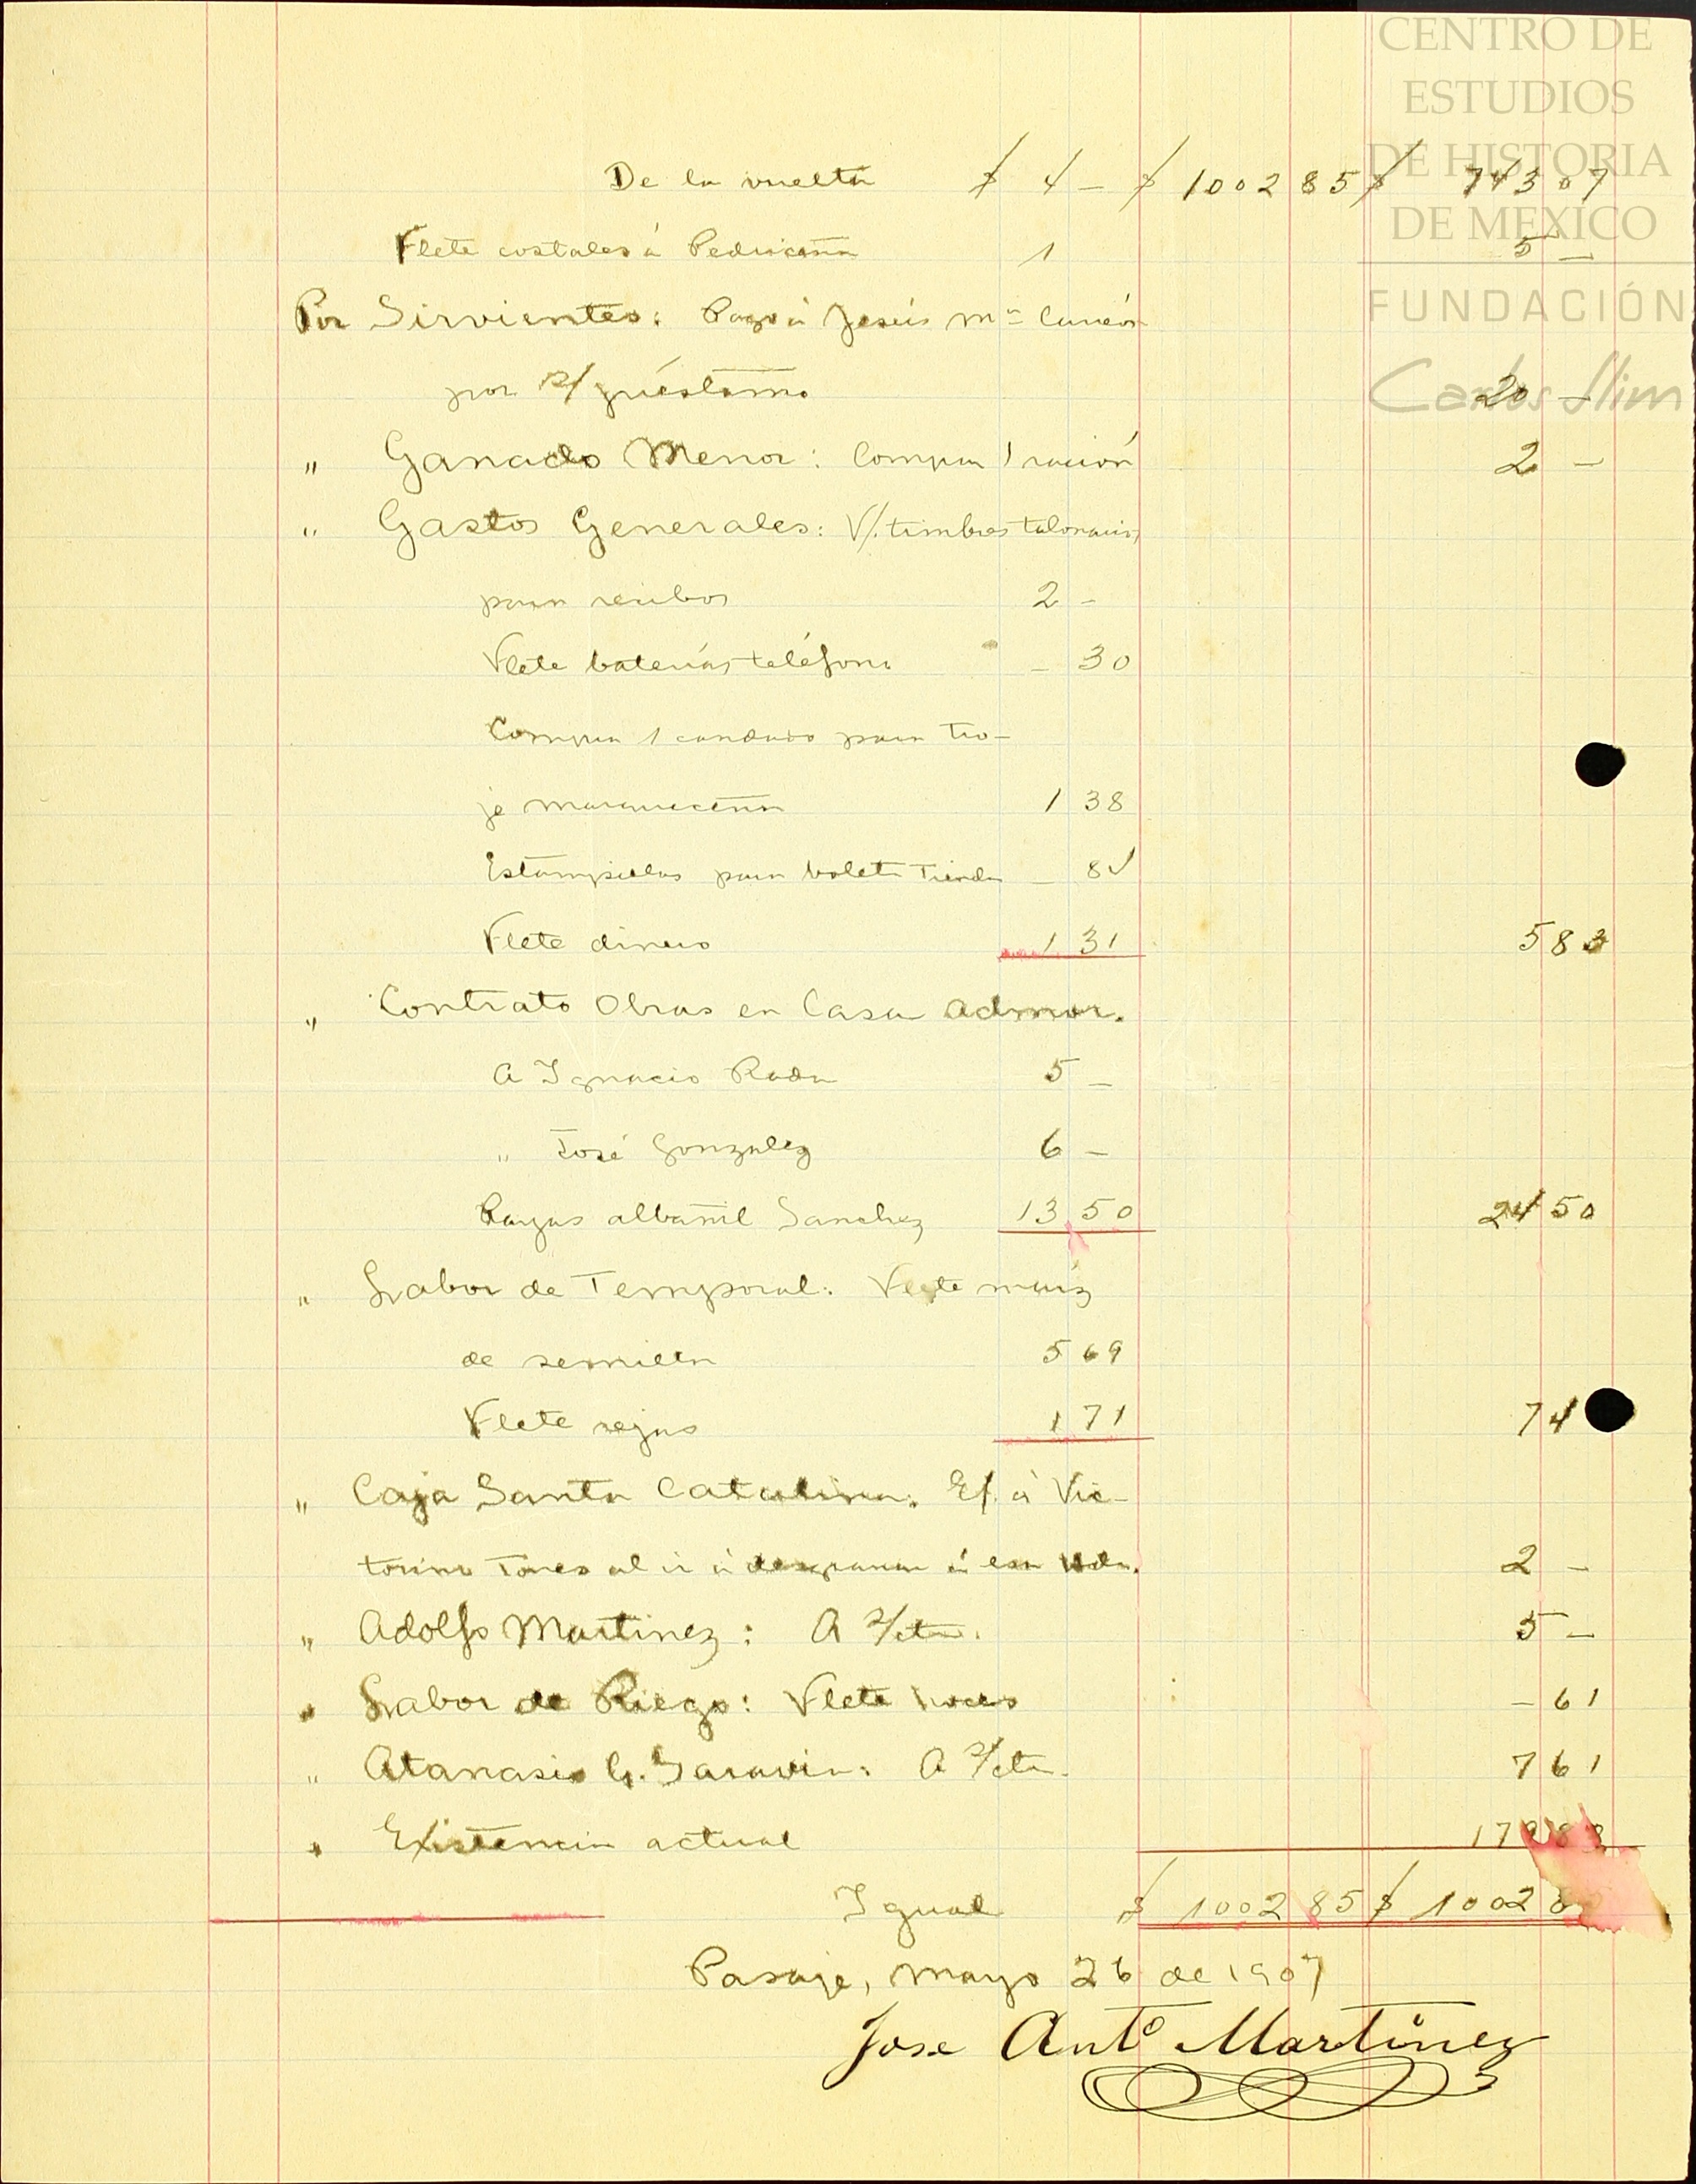 CENTRO DE
ESTUDIOS
DE HISTORIA
DE MEXICO
FUNDACIÓN
Carlos Slim
De la vuelta $ 4 – $ 1002 85 $ 743 07
Flete costales á Pedriceña 1 5 –
Por Sirvientes: Pago á Jesús Mª
por préstamo 20 –
" Ganado Menor: Compra 1 ración 2 –
" Gastos Generales: V/. timbres talonarios
para recibos 2 –
Flete baterías teléfono – 30
Compra 1 candado para tro-
je 1 38
Estampillas para bolet. Tienda – 84
Flete dinero 1 31 5 83
" Contrato Obras en Casa Admor.
A Ignacio Rada 5 –
" José Gonzalez 6 –
Rayas albañil Sanchez 13 50 24 50
" Labor de Temporal: Flete maíz
de semilla 5 69
Flete rejas 1 71 7 4
" Caja Santa Catalina: Ef. á Vic-
torino Torres al ir á á esa Hda. 2 –
" Adolfo Martinez: A s/cta. 5 –
" Labor de Riego: Flete hoces – 61
" Atanasio G. Saravia: A s/cta. 7 61
" Existencia actual
Igual $ 1002 85 $ 1002 8
Pasaje, Mayo 26 de 1907
Jose Antº Martínez